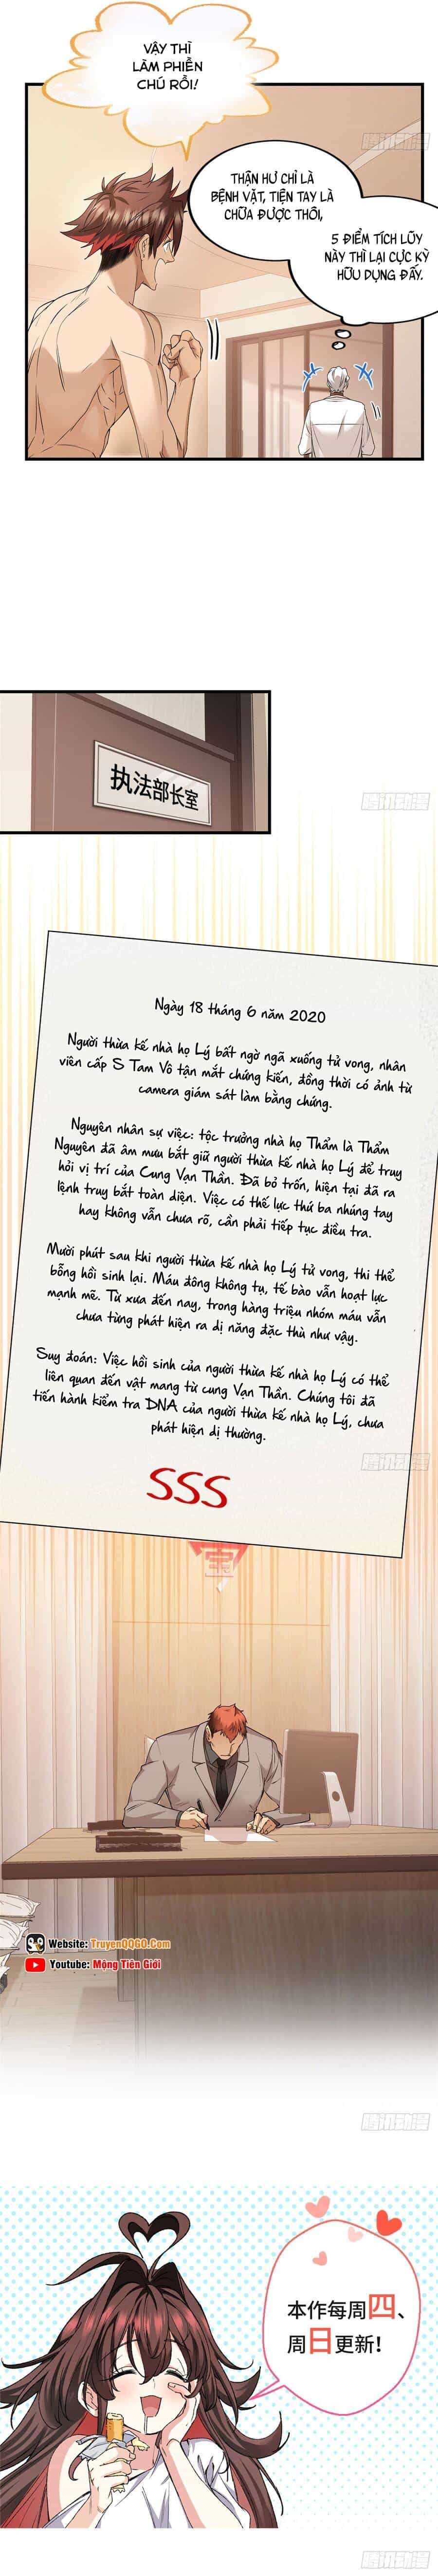 VẬY THÌ
LÀM PHIỀN
CHÚ RỒI!
腾讯动漫
THẬN HƯ CHỈ LÀ
BỆNH VẶT, TIỆN TAY LÀ
CHỮA ĐƯỢC THÔI,
5 ĐIỂM TÍCH LŨY
NÀY THÌ LẠI CỰC KỲ
HỮU DỤNG ĐẤY.
执法部长室
腾讯动漫
Ngày 18 tháng 6 năm 2020
Người thừa kế nhà họ Lý bất ngờ ngã xuống tử vong, nhân
viên cấp S Tam Vô tận mắt chứng kiến, đồng thời có ảnh từ
camera giám sát làm bằng chứng.
Nguyên nhân sự việc: tộc trưởng nhà họ Thẩm là Thẩm
Nguyên đã âm mưu bắt giữ người thừa kế nhà họ Lý để truy
hỏi vị trí của Cung Vạn Thần. Đã bỏ trốn, hiện tại đã ra
lệnh truy bắt toàn diện. Việc có thế lực thứ ba nhúng tay
hay không vẫn chưa rõ, cần phải tiếp tục điều tra.
Mười phút sau khi người thừa kế nhà họ Lý tử vong, thi thể
bỗng hồi sinh lại. Máu đông không tụ, tế bào vẫn hoạt lực
mạnh mẽ. Từ xưa đến nay, trong hàng triệu nhóm máu vẫn
chưa từng phát hiện ra dị năng đặc thù như vậy.
Suy đoán: Việc hồi sinh của người thừa kế nhà họ Lý có thể
liên quan đến vật mang từ cung Vạn Thần. Chúng tôi đã
tiến hành kiểm tra DNA của người thừa kế nhà họ Lý, chưa
phát hiện dị thường.
腾讯动漫
SSS
Website: TruyenQQGO.Com
Youtube: Mộng Tiên Giới
腾讯动漫
本作每周四、
周日更新！
腾讯动漫